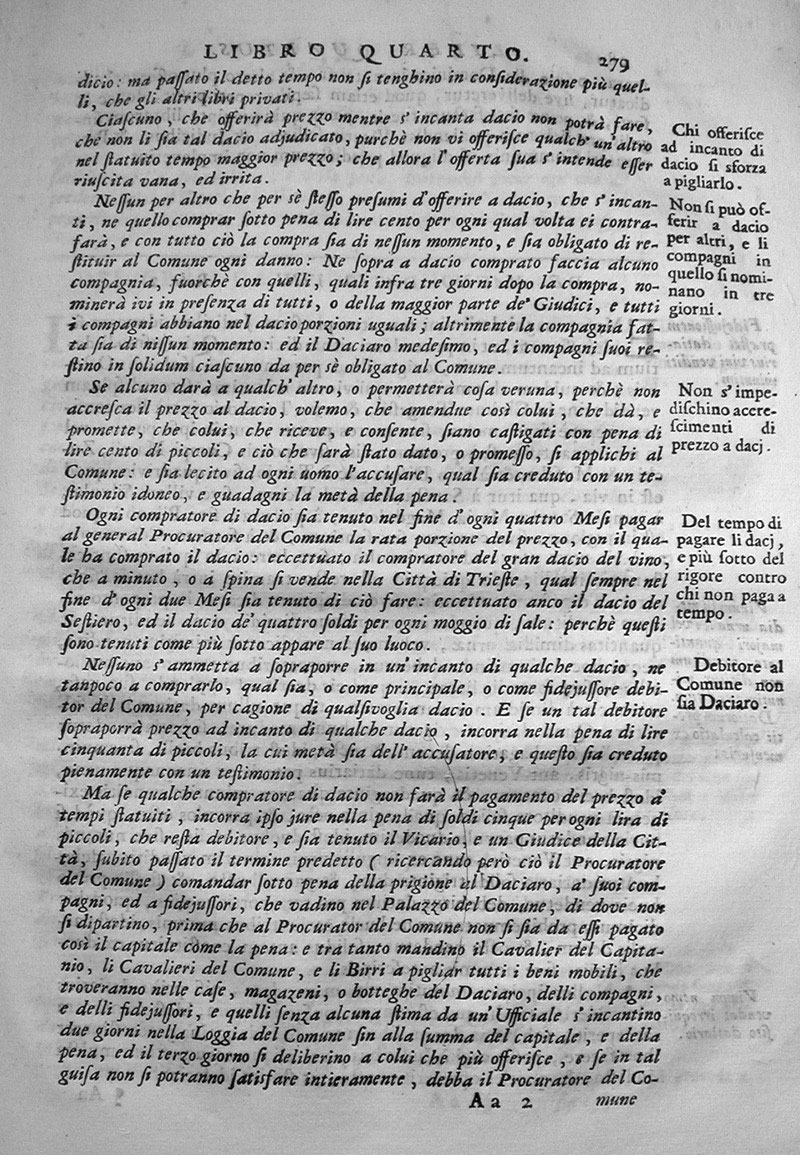 LIBRO QUARTO. 279
dicio: ma paſſato il detto tempo non ſi tenghino in conſiderazione più quel-
li, che gli altri libri privati.
Ciaſcuno, che offerirà prezzo mentre s'incanta dacio non potrà fare,
che non li ſia tal dacio adjudicato, purchè non vi offeriſce qualch' un'altro
nel ſtatuito tempo maggior prezzo; che allora l'offerta ſua s'intende eſſer
riuſcita vana, ed irrita.
Chi offeriſce
ad incanto di
dacio ſi sforza
a pigliarlo.
Neſſun per altro che per sè ſteſſo preſumi d'offerire a dacio, che s'incan-
ti, ne quello comprar ſotto pena di lire cento per ogni qual volta ei contra-
farà, e con tutto ciò la compra ſia di neſſun momento, e ſia obligato di re-
ſtituir al Comune ogni danno: Ne ſopra a dacio comprato faccia alcuno
compagnia, fuorchè con quelli, quali infra tre giorni dopo la compra, no-
minerà ivi in preſenza di tutti, o della maggior parte de' Giudici, e tutti
i compagni abbiano nel dacio porzioni uguali; altrimente la compagnia fat-
ta ſia di niſſun momento: ed il Daciaro medeſimo, ed i compagni ſuoi re-
ſtino in ſolidum ciaſcuno da per sè obligato al Comune.
Non ſi può of-
ferir a dacio
per altri, e li
compagni in
quello ſi nomi-
nano in tre
giorni.
Se alcuno darà a qualch' altro, o permetterà coſa veruna, perchè non
accreſca il prezzo al dacio, volemo, che amendue così colui, che dà, e
promette, che colui, che riceve, e conſente, ſiano caſtigati con pena di
lire cento di piccoli, e ciò che ſarà ſtato dato, o promeſſo, ſi applichi al
Comune: e ſia lecito ad ogni uomo l'accuſare, qual ſia creduto con un te-
ſtimonio idoneo, e guadagni la metà della pena.
Non s'impe-
diſchino accre-
ſcimenti di
prezzo a dacj.
Ogni compratore di dacio ſia tenuto nel fine d'ogni quattro Meſi pagar
al general Procuratore del Comune la rata porzione del prezzo, con il qua-
le ha comprato il dacio: eccettuato il compratore del gran dacio del vino,
che a minuto, o a ſpina ſi vende nella Città di Trieſte, qual ſempre nel
fine d'ogni due Meſi ſia tenuto di ciò fare: eccettuato anco il dacio del
Seſtiero, ed il dacio de' quattro ſoldi per ogni moggio di ſale: perchè queſti
ſono tenuti come più ſotto appare al ſuo luoco.
Del tempo di
pagare li dacj,
e più ſotto del
rigore contro
chi non paga a
tempo.
Neſſuno s'ammetta a ſopraporre in un'incanto di qualche dacio, ne
tanpoco a comprarlo, qual ſia, o come principale, o come fidejuſſore debi-
tor del Comune, per cagione di qualſivoglia dacio. E ſe un tal debitore
ſopraporrà prezzo ad incanto di qualche dacio, incorra nella pena di lire
cinquanta di piccoli, la cui metà ſia dell' accuſatore, e queſto ſia creduto
pienamente con un teſtimonio.
Debitore al
Comune non
ſia Daciaro.
Ma ſe qualche compratore di dacio non farà il pagamento del prezzo a'
tempi ſtatuiti, incorra ipſo jure nella pena di ſoldi cinque per ogni lira di
piccoli, che reſta debitore, e ſia tenuto il Vicario, e un Giudice della Cit-
tà, ſubito paſſato il termine predetto (ricercando però ciò il Procuratore
del Comune) comandar ſotto pena della prigione al Daciaro, a' ſuoi com-
pagni, ed a fidejuſſori, che vadino nel Palazzo del Comune, di dove non
ſi dipartino, prima che al Procurator del Comune non ſi ſia da eſſi pagato
così il capitale come la pena: e tra tanto mandino il Cavalier del Capita-
nio, li Cavalieri del Comune, e li Birri a pigliar tutti i beni mobili, che
troveranno nelle caſe, magazeni, o botteghe del Daciaro, delli compagni,
e delli fidejuſſori, e quelli ſenza alcuna ſtima da un' Ufficiale s'incantino
due giorni nella Loggia del Comune ſin alla ſumma del capitale, e della
pena, ed il terzo giorno ſi deliberino a colui che più offeriſce, e ſe in tal
guiſa non ſi potranno ſatisfare intieramente, debba il Procuratore del Co-
Aa 2 mune